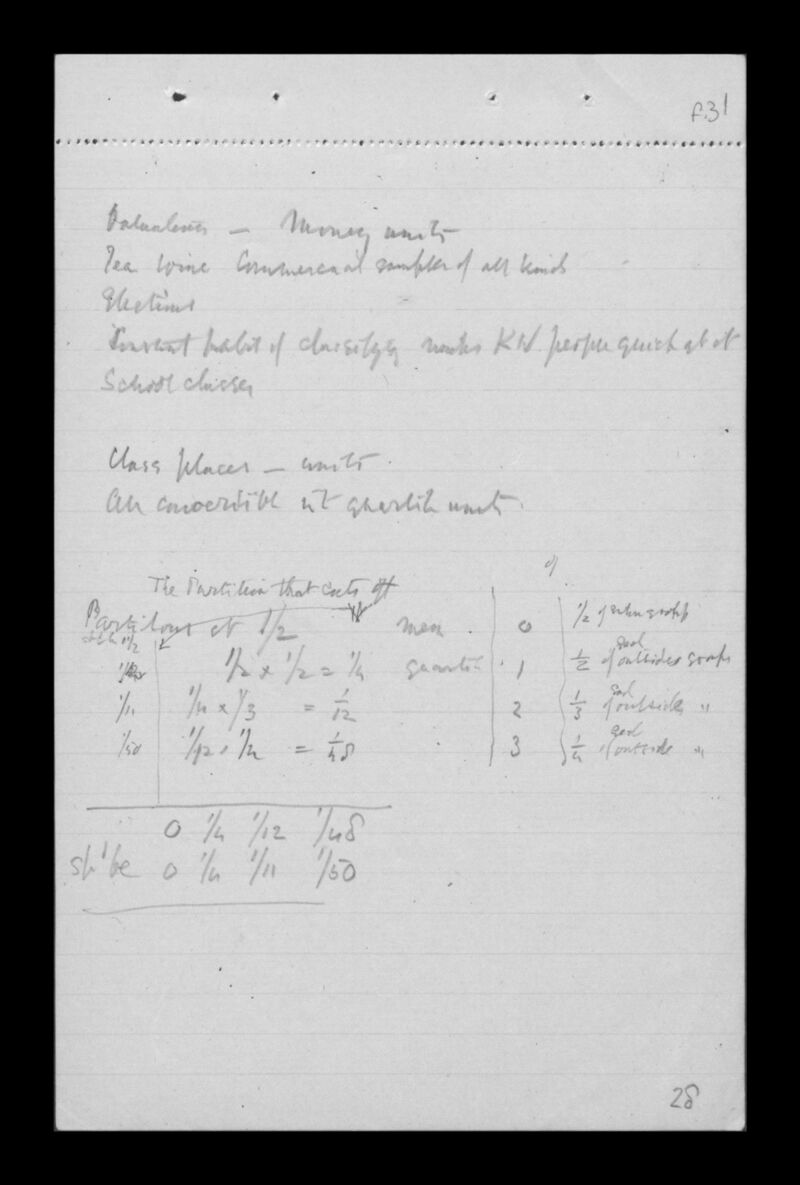 f.31
Valuations — Money units
Tea Wine Commercial samples of all kinds
Elections
habit of classifying marks people quick at it
School classes
Class places — units
All convertible into quartile units
The Partition that cuts off
Partitions at 1/2 mean 0 1/2 of group
1/2 x 1/2 = 1/4 quartile 1 1/2 of each outside group
1/11 1/4 x 1/3 = 1/12 2 1/3 of each outside "
1/50 1/12 x 1/4 = 1/48 3 1/4 of each outside "
0 1/4 1/12 1/48
sh'd be 0 1/4 1/11 1/50
28